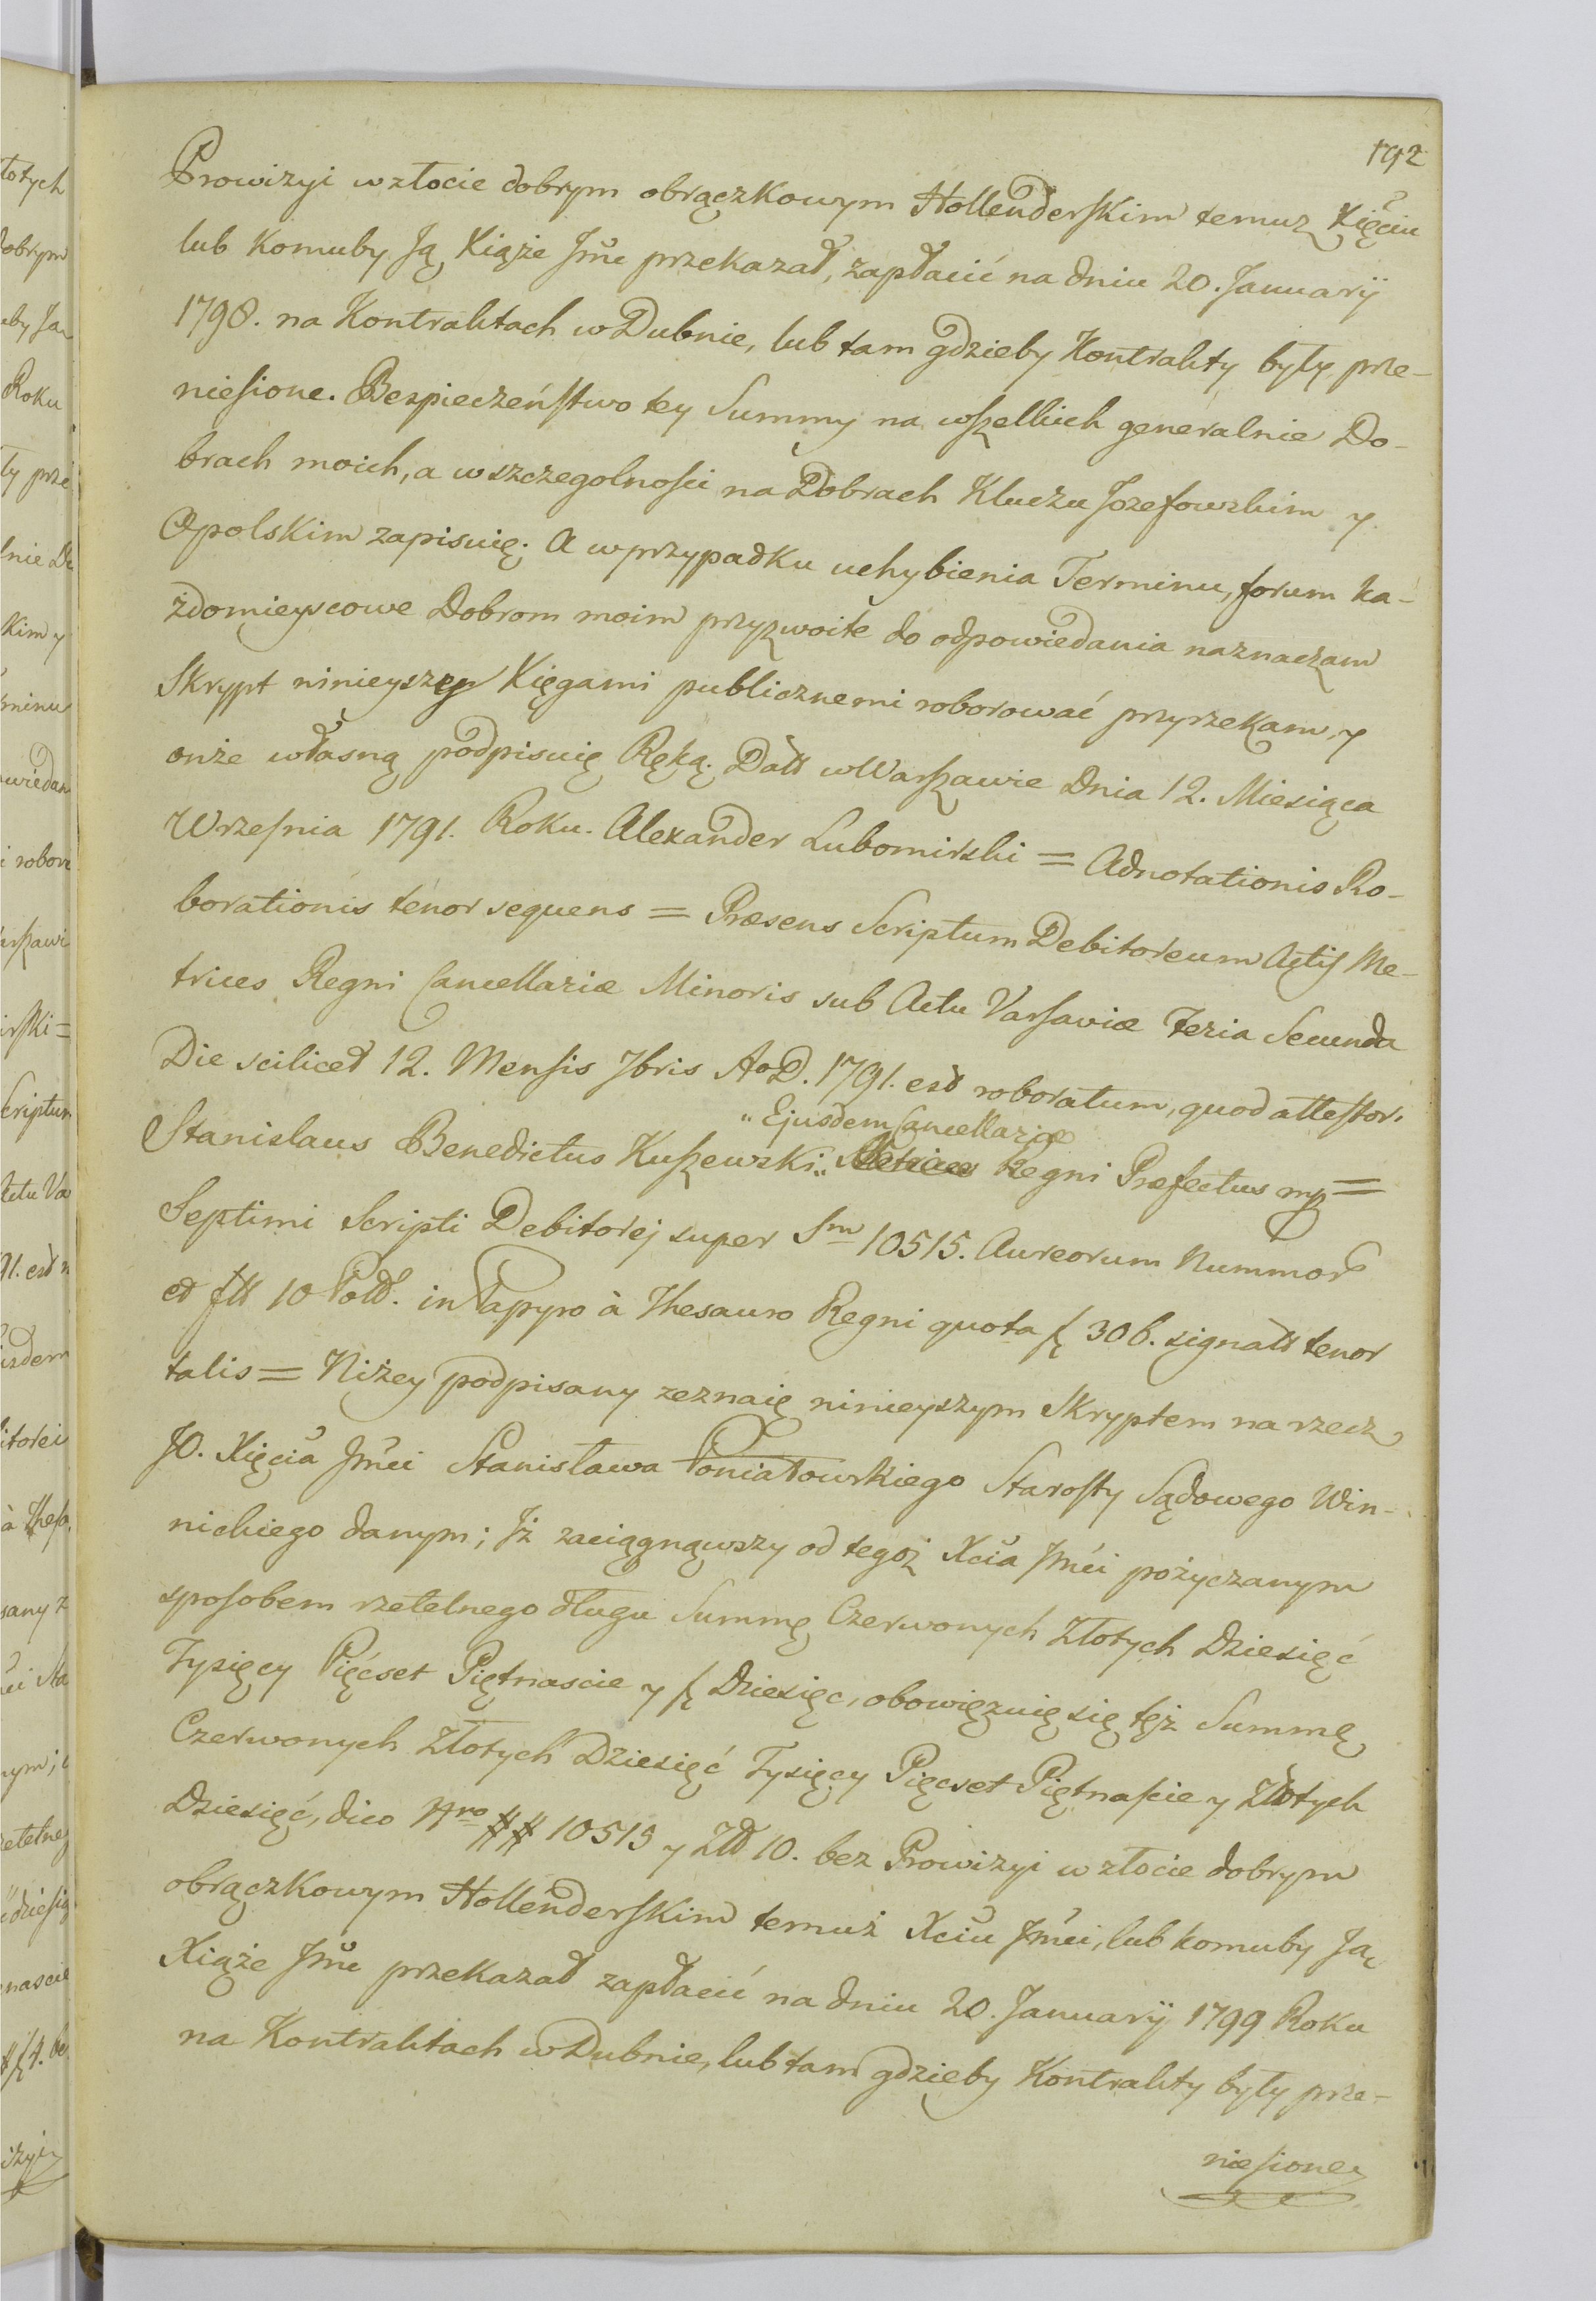 192
Prowizyi w złocie dobrym obrączkowym Hollenderskim temuz Xięciu
lub komuby Ją Xiąże Jmć przekazał, zapłacić na dniu 20. Januarij
1798. na Kontraktach w Dubnie, lub tam gdzieby Kontrakty były prze-
niesione. Bezpieczeństwo tey Summy na wszelkich generalnie Do-
brach moich, a w szczegolnosci na Dobrach Kluczu Jozefowskim y
Opolskim zapisuię. A w przypadku uchybienia Terminu, forum ka-
żdomieyscowe Dobrom moim przyzwoite do odpowiedania naznaczam
Skrypt ninieyszy Xięgami publicznemi roborować przyrzekam, y
onże własną podpisuię Ręką. Datt w Warszawie Dnia 12. Miesiąca
Września 1791. Roku. Alexander Lubomirski = Adnotationis Ro-
borationis tenor sequens = Præsens Scriptum Debitoreum Actis Me-
trices Regni Cancellariæ Minoris sub Actu Varsaviæ Feria Secunda
Die scilicet 12. Mensis 7bris AoD. 1791. est roboratum, quod attestor.
„ Ejusdem Cancellariæ
Stanislaus Benedictus Kuszewski „ Metrices Regni Præfectus mp =
Septimi Scripti Debitorej super Sm 10515. Aureorum Nummor
et fll 10 Poll. in Papyro à Thesauro Regni quota f 306. signatt tenor
talis = Niżey podpisany zeznaię ninieyszym Skryptem na rzecz
JO. Xięcia Jmći Stanisława Poniatowskiego Starosty Sądowego Win-
nickiego danym; Iż zaciągnąwszy od tegoż Xcia Jmći pożyczanym
sposobem rzetelnego długu Summę Czerwonych Złotych Dziesięć
Tysięcy Pięćset Piętnascie y f Dziesięc, obowięzuię się tęż Summę
Czerwonych Złotych Dziesięć Tysięcy Pięcset Piętnascie y Złotych
Dziesięć, dico Nro ## 10515 y Zll 10. bez Prowizyi w złocie dobrym
obrączkowym Hollenderskim temuż Xciu Jmći, lub komuby Ją
Xiąże Jmć przekazał zapłacić na dniu 20. Januarij 1799 Roku
na Kontraktach w Dubnie, lub tam gdzieby Kontrakty były prze-
niesione